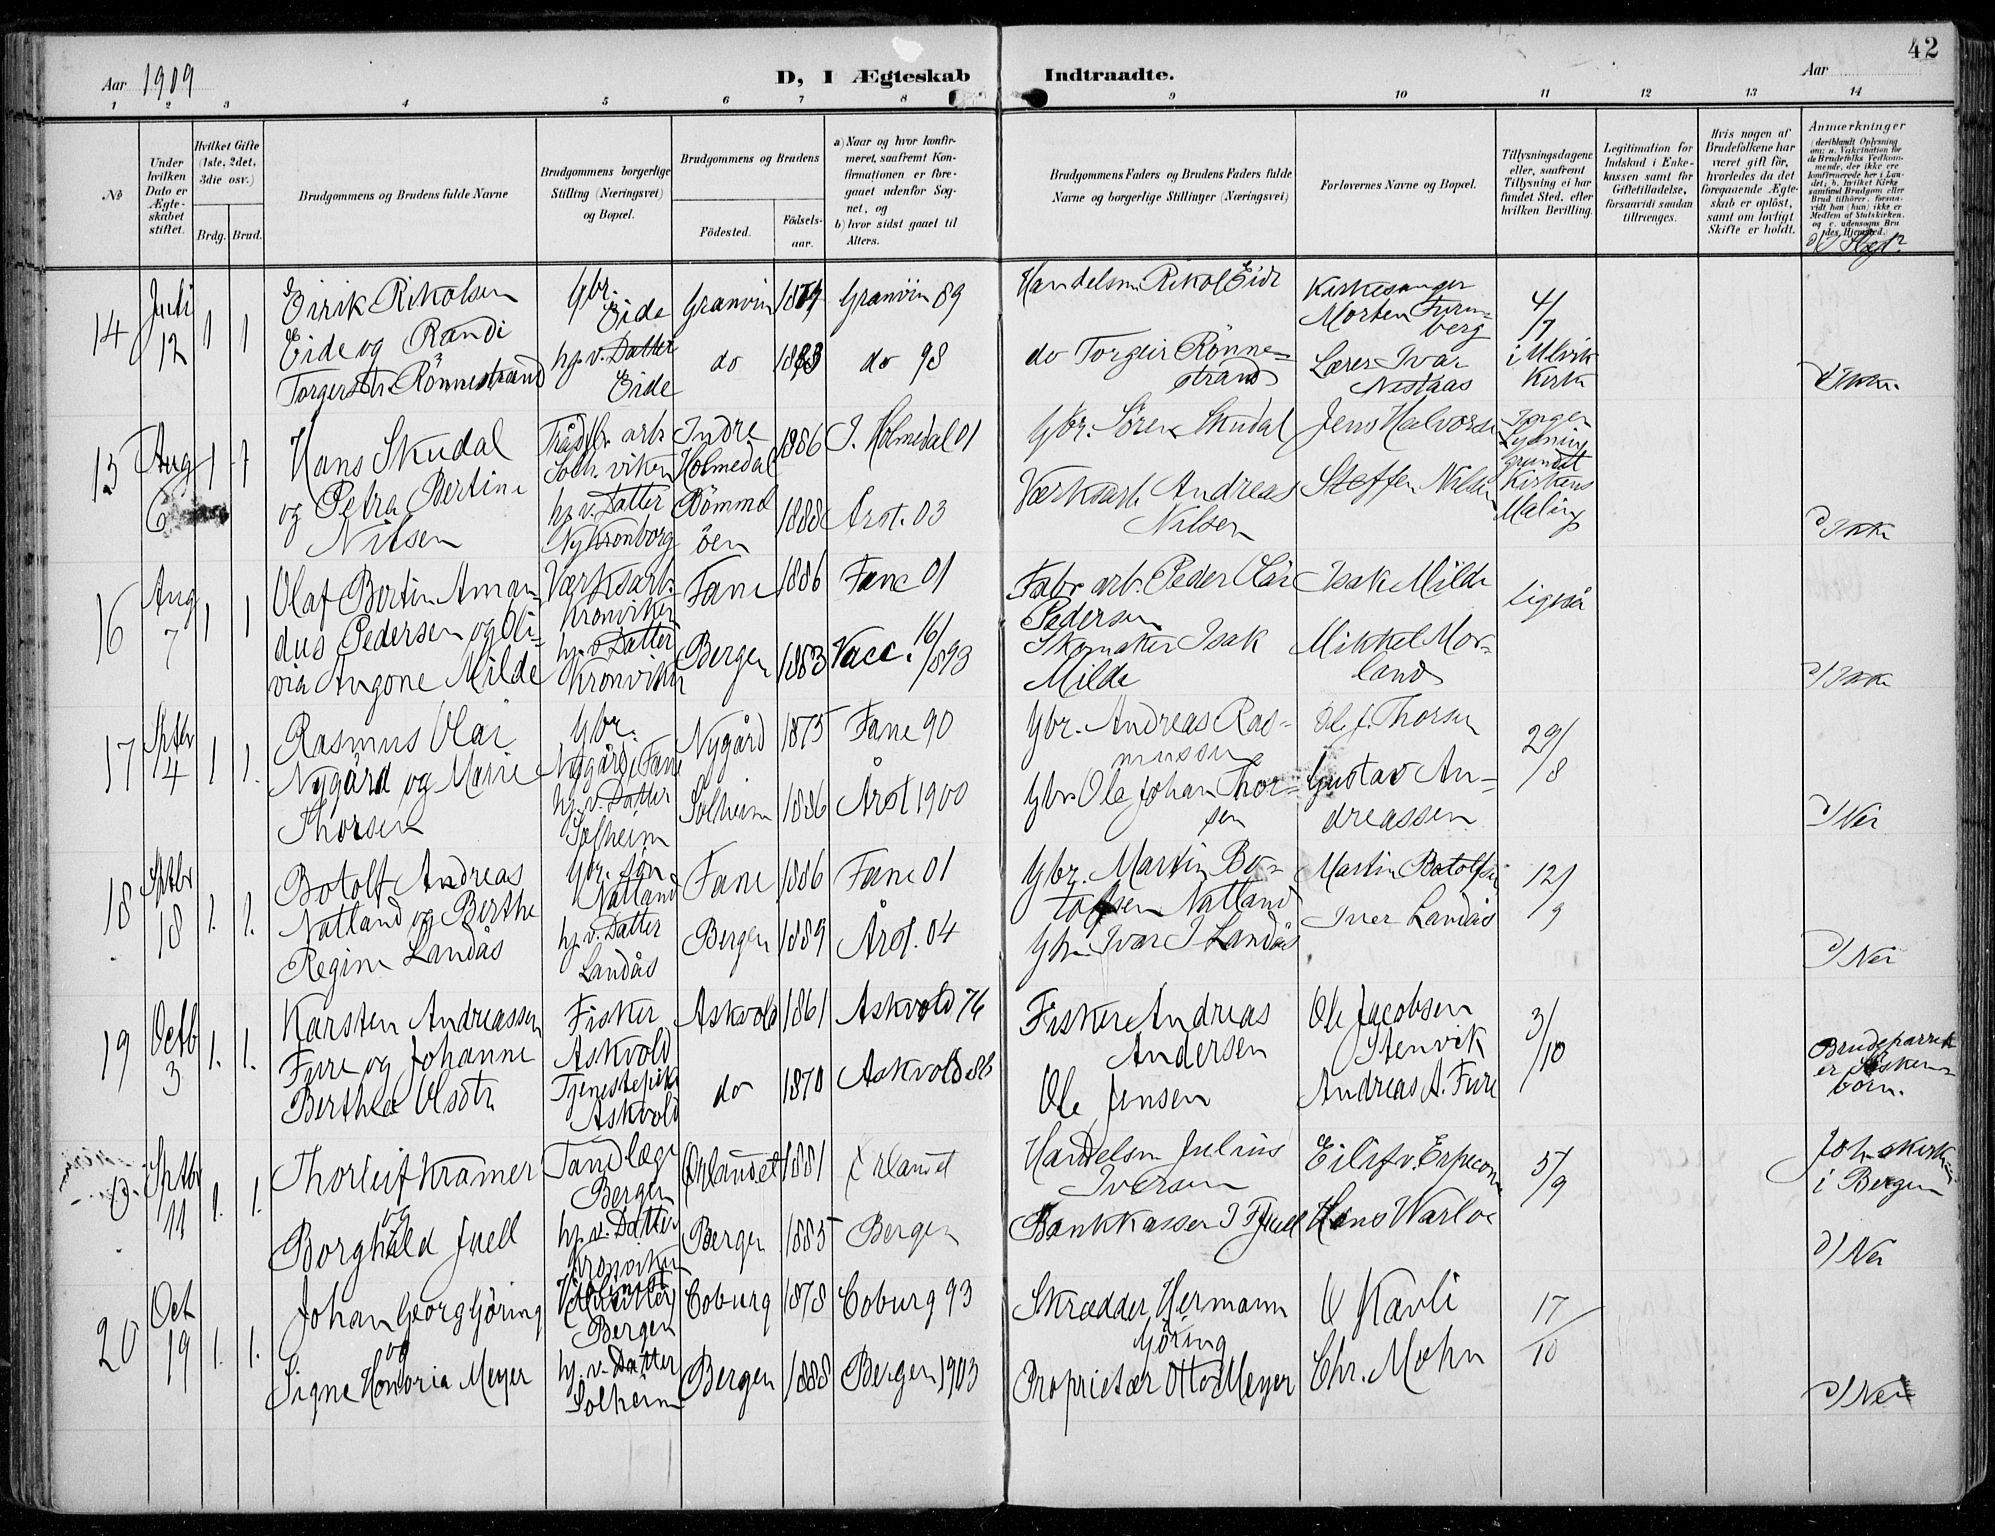 42
Aar 1909
D, I Ægteskab Indtraadte.
Aar
1 2 3 4 5 6 7 8 9 10 11 12 13 14
No
Under hvilken Dato er Ægteskabet stiftet.
Hvilket Gifte (1ste, 2det, 3die osv.)
Brdg. Brud.
Brudgommens og Brudens fulde Navne
Brudgommens borgerlige Stilling (Næringsvei) og Bopæl.
Brudgommens og Brudens
Födested.
Födsels-aar.
a) Naar og hvor konfirmeret, saafremt Konfirmationen er foregaaet udenfor Sognet, og
b) hvor sidst gaaet til Alters.
Brudgommens Faders og Brudens Faders fulde Navne og borgerlige Stillinger (Næringsvei)
Forlovernes Navne og Bopæl.
Tillysningsdagene eller, saafremt Tillysning ei har fundet Sted, efter hvilken Bevilling.
Legitimation for Indskud i Enkekassen samt for Giftetilladelse, forsaavidt saadan tiltrænges.
Hvis nogen af Brudefolkene har været gift för, hvorledes da det foregaaende Ægteskab er oplöst, samt om lovligt Skifte er holdt.
Anmærkninger
14 Juli 12 1 1
Eirik Rikolsen
Eide og Randi
Torgersdtr Rönnestrand
Gbr.
Eide
hj. v. Datter
Eide
Granvin 1879 Granvin 89
do 1883 do 98
Handelsm Rikol Eide
do Torgeir Rönne-
strand
Kirkesanger
Morten Furu-
berg
Lærer Ivar
Nestaas
4/7
i Ulvik
Kirke
15 Aug 6 1 1
Hans Skudal
og Petra Bertine
Nilsen
Solh. viken
hj. v. Datter
Ny Kronborg
Indre
Holmedal
Bömmel
öen
1886 I. Holmedal 01
1888 Årst. 03
Gbr. Sören Skudal
Værksarb Andreas
Nilsen
Jens Halvorsen
Steffen Nilsen
grundet
Kirkens
Maling
d) Ikke
16 Aug 7 1 1
Olaf Bertin Aman-
dus Pedersen og Oli-
via Angone Milde
Værksarb.
Kronviken
hj. v. Datter
Kronviken
Fane 1886 Fane 01
Bergen 1883 Vacc. 16/ 893
Fabr arb. Peder Olai
Pedersen
Skomaker Isak
Milde
Isak Milde
Mikkel Mor-
land
ligeså
d) Ikke
17 Sptbr 4 1 1.
Rasmus Olai
Nygård og Marie
Thorsen
Gbr.
Nygård i Fane
hj. v. Datter
Solheim
Nygård 1875 Fane 90
Solheim 1886 Årst 1900
Gbr. Andreas Ras-
mussen
Gbr Ole Johan Thor-
sen
Ole J. Thorsen
Gustav An-
dreassen
29/8
d) Nei
18 Sptbr 18 1. 1.
Botolf Andreas
Natland og Berthe
Regine Landås
Gbr. sön
Natland
hj. v. Datter
Landås
Fane 1886 Fane 01
Bergen 1889 Årst. 04
Gbr. Martin Bo-
tolfsen Natland
Gbr. Ivar I Landås
Martin Botolfsen
Iver Landås
12/9
d) Nei
19 Octb 3 1. 1.
Karsten Andreassen
Fure og Johanne
Berthea Olsdtr
Fisker
Askvold
Tjenestepike
Askvold
Askvold 1861 Askvold 76
do 1870 Askvold 86
Fisker Andreas
Andersen
Ole Jensen
Ole Jacobsen
Stenvik
Andreas A. Fure
3/10
Brudeparret
er Söskene-
börn.
Sptbr 11 1. 1.
Thorleif Kramer
og
Borghild Juell
Tandlæge
Bergen
hj. v. Datter
Kronviken
Ørlandet 1881 Ørlandet
Bergen 1885 Bergen
Handelsm Julius
Iversen
Bankkasser I F Juell
Eilif v. Erpecom
Hans Warloe
5/9
Johskirken
i Bergen
d) Nei
20 Oct 19 1. 1.
Johan Georg Göring
og
Signe Honoria Meyer
Bergen
hj. v. Datter
Solheim
Coburg 1878 Coburg 93
Bergen 1888 Bergen 1903
Skrædder Hermann
Göring
Proprietær Otto Meyer
O Kavli
Chr. Mohn
17/10
d) Nei